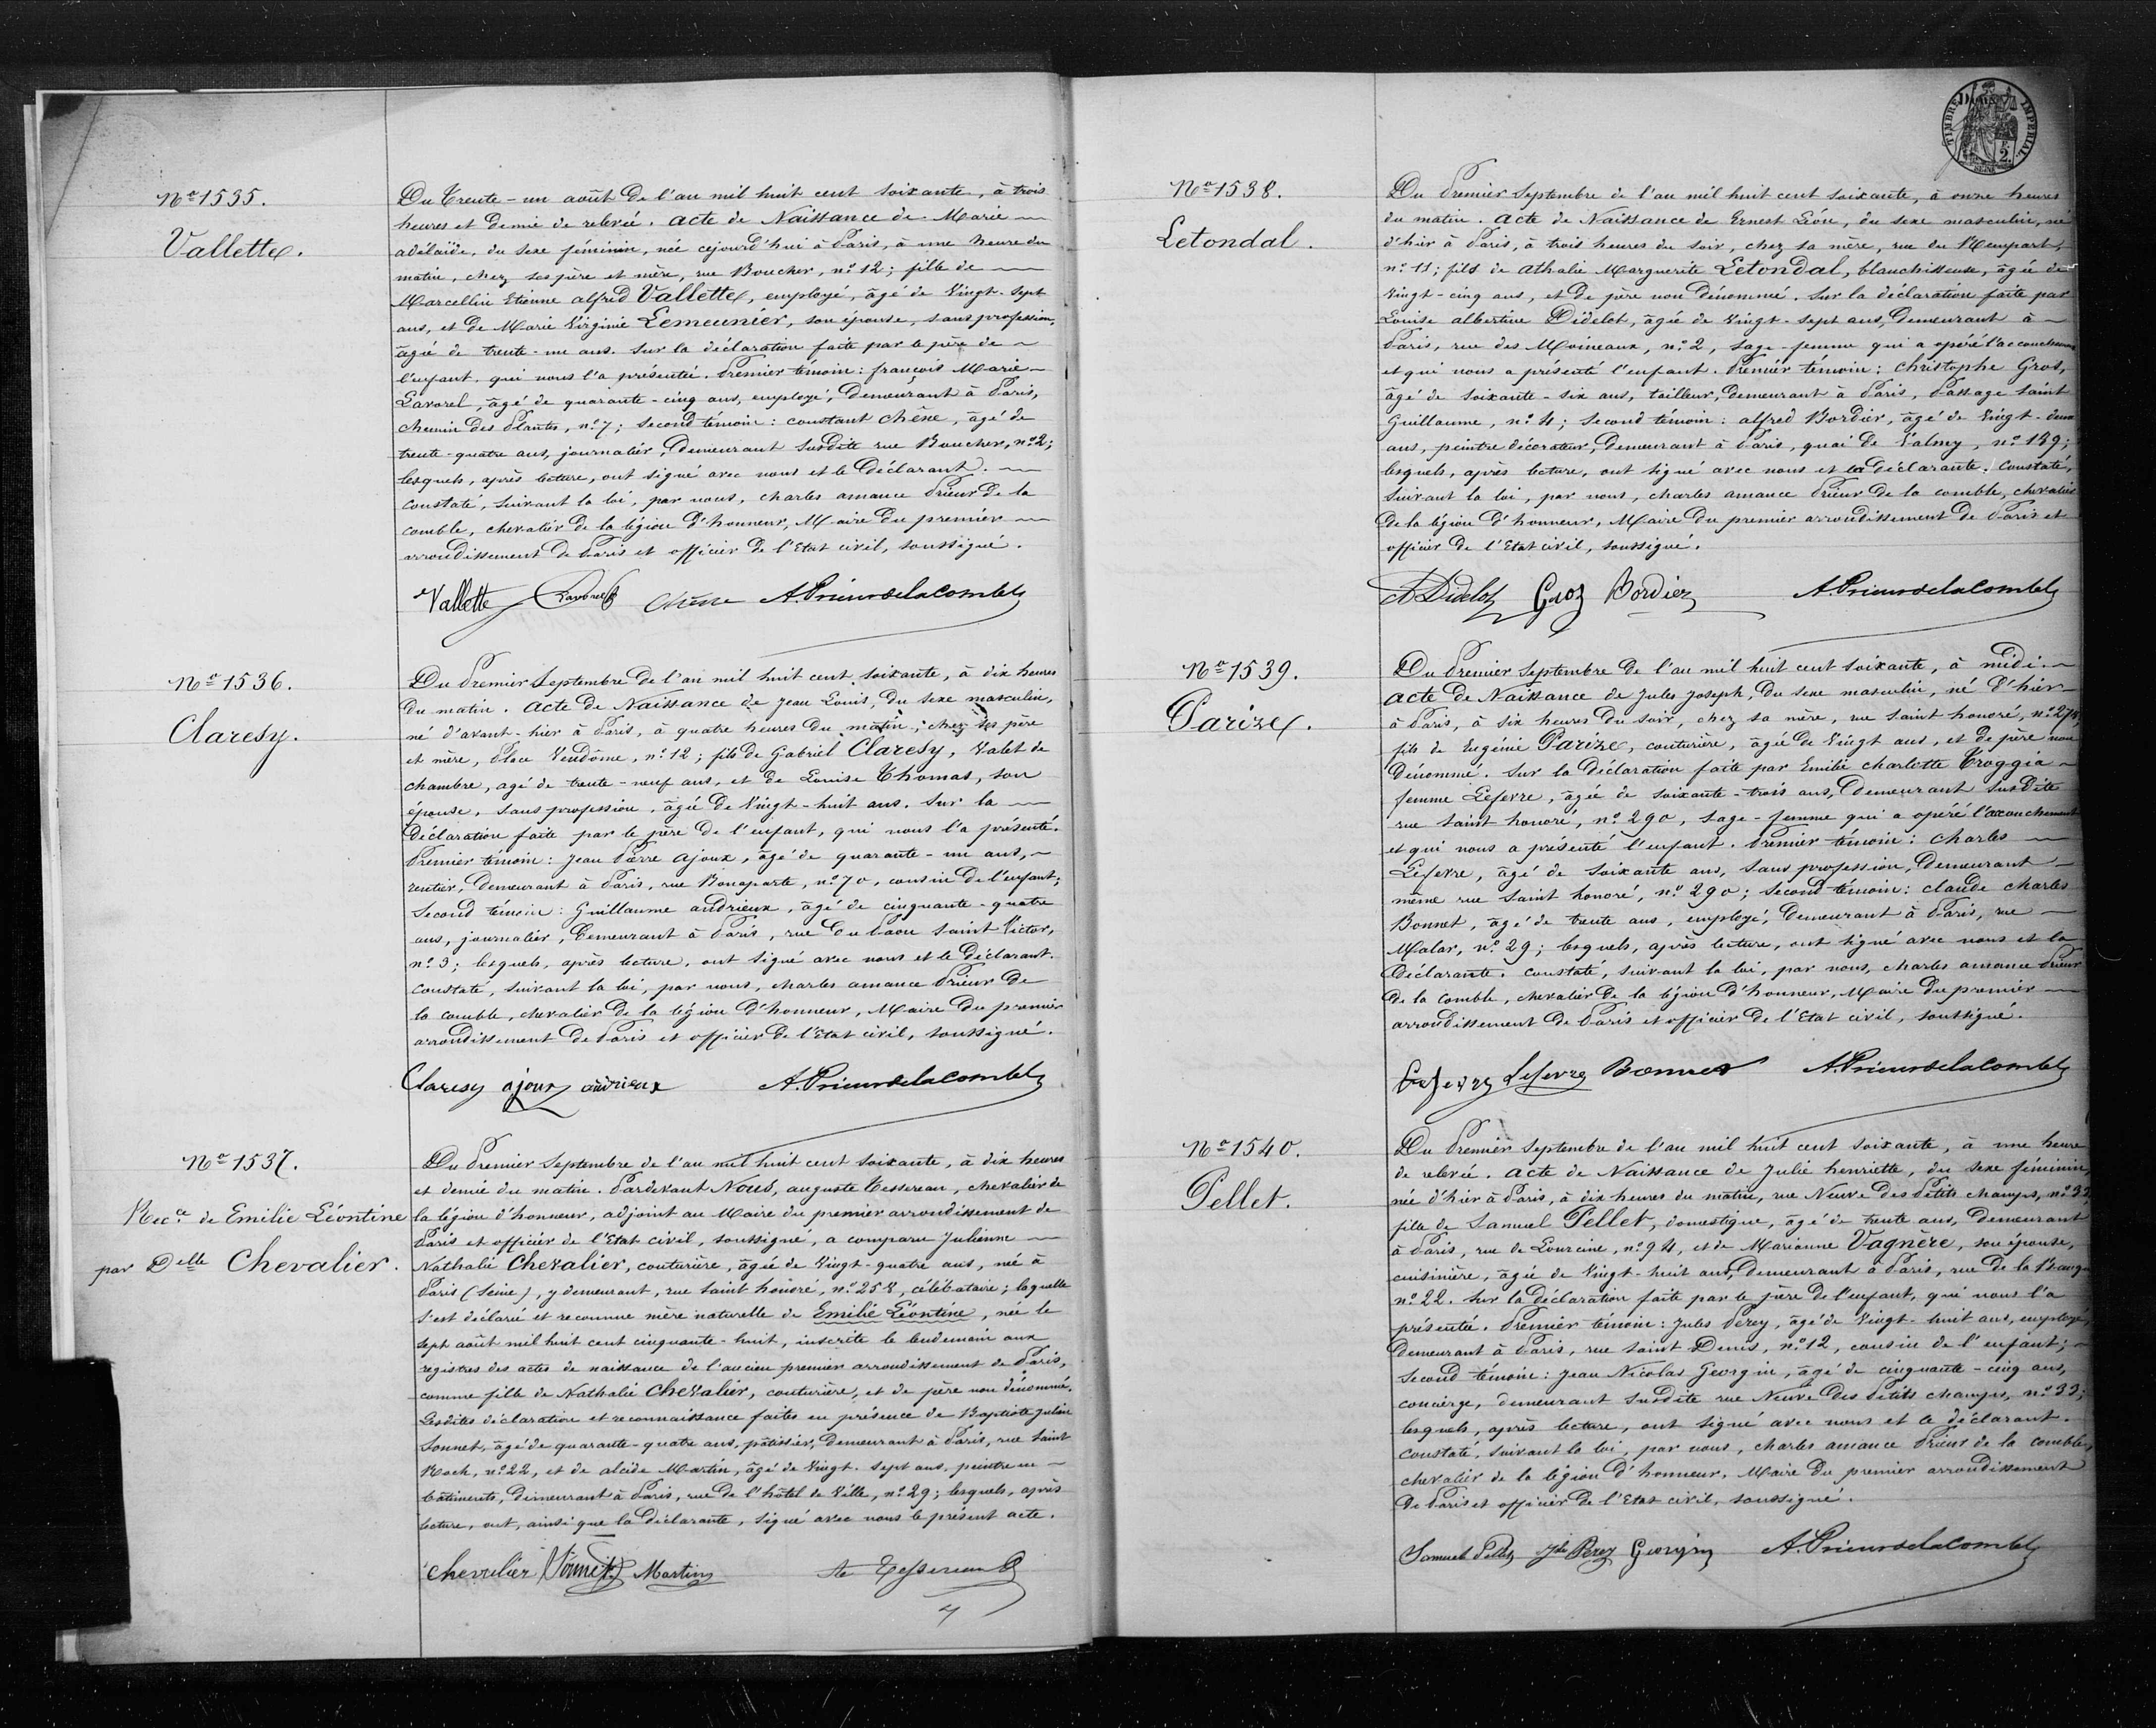 Nº 1535.
Vallette.
Du Trente-un août de l'an mil huit cent soixante, à trois
heures et demie de relevée. acte de Naissance de Marie
adélaïde, du sexe féminin, née cejourd'hui à Paris, à une heure du
matin, chez ses père et mère, rue Boucher, nº 12; fille de
Marcellin Etienne alfred Vallette, employé, âgé de Vingt-sept
ans, et de Marie Virginie Lemeunier, son épouse, sans profession,
âgée de trente-un ans. Sur la déclaration faite par le père de
l'enfant, qui nous l'a présentée. Premier témoin: françois Marie
Lavorel, âgé de quarante-cinq ans, employé, demeurant à Paris,
chemin des Plantes, nº 7; Second témoin: constant chêne, âgé de
trente-quatre ans, journalier, Demeurant susdite rue Boucher, nº 2;
lesquels, après lecture, ont signé avec nous et le Déclarant.
constaté, suivant la loi, par nous, charles amance Prieur de la
comble, chevalier de la légion d'honneur, Maire du premier
arrondissement de Paris et officier de l'Etat civil, soussigné.
Vallette Chêne A. Prieur de la Comble
Nº 1536.
Claresy.
Du Premier Septembre de l'an mil huit cent soixante, à dix heures
du matin. acte de Naissance de Jean Louis, du sexe masculin,
né d'avant-hier à Paris, à quatre heures du matin, chez ses père
et mère, Place Vendôme, nº 12; fils de Gabriel Claresy, Valet de
chambre, agé de trente-neuf ans, et de Louise Thomas, son
épouse, sans profession, âgée de Vingt-huit ans. Sur la
Déclaration faite par le père de l'enfant, qui nous l'a présenté.
Premier témoin: Jean Pierre ajoux, âgé de quarante-un ans,
rentier, demeurant à Paris, rue Bonaparte, nº 70, cousin de l'enfant;
Second témoin: Guillaume andrieux, âgé de cinquante-quatre
ans, journalier, Demeurant à Paris, rue du Paon Saint Victor,
nº 3; lesquels, après lecture, ont signé avec nous et le Déclarant.
constaté, suivant la loi, par nous, charles amance Prieur de
la comble, chevalier de la légion d'honneur, Maire du premier
arrondissement de Paris et officier de l'Etat civil, soussigné.
Claresy ajoux andrieux A. Prieur de la Comble
Nº 1537.
Recce de Emilie Léontine
par Delle Chevalier.
Du Premier Septembre de l'an mil huit cent soixante, à dix heures
et demie du matin. Pardevant Nous, auguste Tessereau, chevalier de
la légion d'honneur, adjoint au Maire du premier arrondissement de
Paris et officier de l'Etat civil, soussigné, a comparu Julienne
Nathalie Chevalier, couturière, âgée de Vingt-quatre ans, né à
Paris (Seine), y demeurant, rue Saint honoré, nº 258, célibataire; laquelle
s'est déclaré et reconnue mère naturelle de Emilie Léontine, née le
sept août mil huit cent cinquante-huit, inscrite le lendemain aux
registres des actes de naissance de l'ancien premier arrondissement de Paris,
comme fille de Nathalie Chevalier, couturière, et de père non dénommé.
Lesdites déclaration et reconnaissance faites en présence de Baptiste Julien
Sonnet, âgé de quarante-quatre ans, pâtissier, demeurant à Paris, rue Saint
Roch, nº 22, et de alcide Martin, âgé de Vingt-sept ans, peintre en
bâtiments, demeurant à Paris, rue de l'hôtel de Ville, nº 29; lesquels, après
lecture, ont, ainsi que la déclarante, signé avec nous le présent acte.
Chevalier Sonnet Martin Ate Tessereau
Nº 1538.
Letondal.
TIMBRE IMPERIAL
2.
SEINE
Du Premier Septembre de l'an mil huit cent soixante, à onze heures
du matin. acte de Naissance de Ernest Léon, du sexe masculin, né
d'hier à Paris, à trois heures du soir, chez sa mère, rue du Rempart,
nº 11; fils de athalie Marguerite Letondal, blanchisseuse, âgée de
Vingt-cinq ans, et de père non dénommé. Sur la déclaration faite par
Louise albertine Didelot, âgée de Vingt-sept ans, demeurant à
Paris, rue des Moineaux, nº 2, sage-femme qui a opéré l'accouchement
et qui nous a présenté l'enfant. Premier témoin: christophe Gros,
âgé de soixante-six ans, tailleur, demeurant à Paris, Passage Saint
Guillaume, nº 4; second témoin: alfred Bordier, âgé de Vingt-deux
ans, peintre décorateur, demeurant à Paris, quai de Valmy, nº 139;
lesquels, après lecture, ont signé avec nous et la déclarante. constaté,
suivant la loi, par nous, charles amance Prieur de la comble, chevalier
de la légion d'honneur, Maire du premier arrondissement de Paris et
officier de l'Etat civil, soussigné.
A Didelot Gros Bordier A. Prieur de la Comble
Nº 1539.
Parize.
Du Premier Septembre de l'an mil huit cent soixante, à midi.
acte de Naissance de Jules Joseph, du sexe masculin, né d'hier
à Paris, à six heures du soir, chez sa mère, rue saint honoré, nº 274;
fils de Eugénie Parize, couturière, âgée de Vingt ans, et de père non
dénommé. Sur la Déclaration faite par Emilie charlotte Troggia
femme Lefevre, âgée de soixante-trois ans, Demeurant susdite
rue saint honoré, nº 290, sage-femme qui a opéré l'accouchement
et qui nous a présenté l'enfant. Premier témoin: Charles
Lefevre, âgé de soixante ans, sans profession, demeurant
même rue Saint honoré, nº 290; second témoin: claude charles
Bonnet, âgé de trente ans, employé, demeurant à Paris, rue
Malar, nº 29; lesquels, après lecture, ont signé avec nous et la
déclarante. constaté, suivant la loi, par nous, charles amance Prieur
de la comble, chevalier de la légion d'honneur, Maire du premier
arrondissement de Paris et officier de l'Etat civil, soussigné.
Lefevre Lefevre Bonnet A. Prieur de la Comble
Nº 1540.
Pellet.
Du Premier Septembre de l'an mil huit cent soixante, à une heure
de relevée. acte de Naissance de Julie henriette, du sexe féminin,
née d'hier à Paris, à dix heures du matin, rue Neuve des Petits champs, nº 33;
fille de Samuel Pellet, domestique, âgé de trente ans, demeurant
à Paris, rue de Lourcine, nº 94, et de Marianne Vagnère, son épouse,
cuisinière, âgée de Vingt-huit ans, demeurant à Paris, rue de la
nº 22. Sur la déclaration faite par le père de l'enfant, qui nous l'a
présentée. Premier témoin: Jules Perey, âgé de Vingt-huit ans, employé,
demeurant à Paris, rue saint Denis, nº 12, cousin de l'enfant;
second témoin: Jean Nicolas Georgin, âgé de cinquante-cinq ans,
concierge, demeurant susdite rue Neuve des Petits champs, nº 33;
lesquels, après lecture, ont signé avec nous et le déclarant.
constaté, suivant la loi, par nous, charles amance Prieur de la comble,
chevalier de la légion d'honneur, Maire du premier arrondissement
de Paris et officier de l'Etat civil, soussigné.
Samuel Pellet Jles Perey Georgin A. Prieur de la Comble